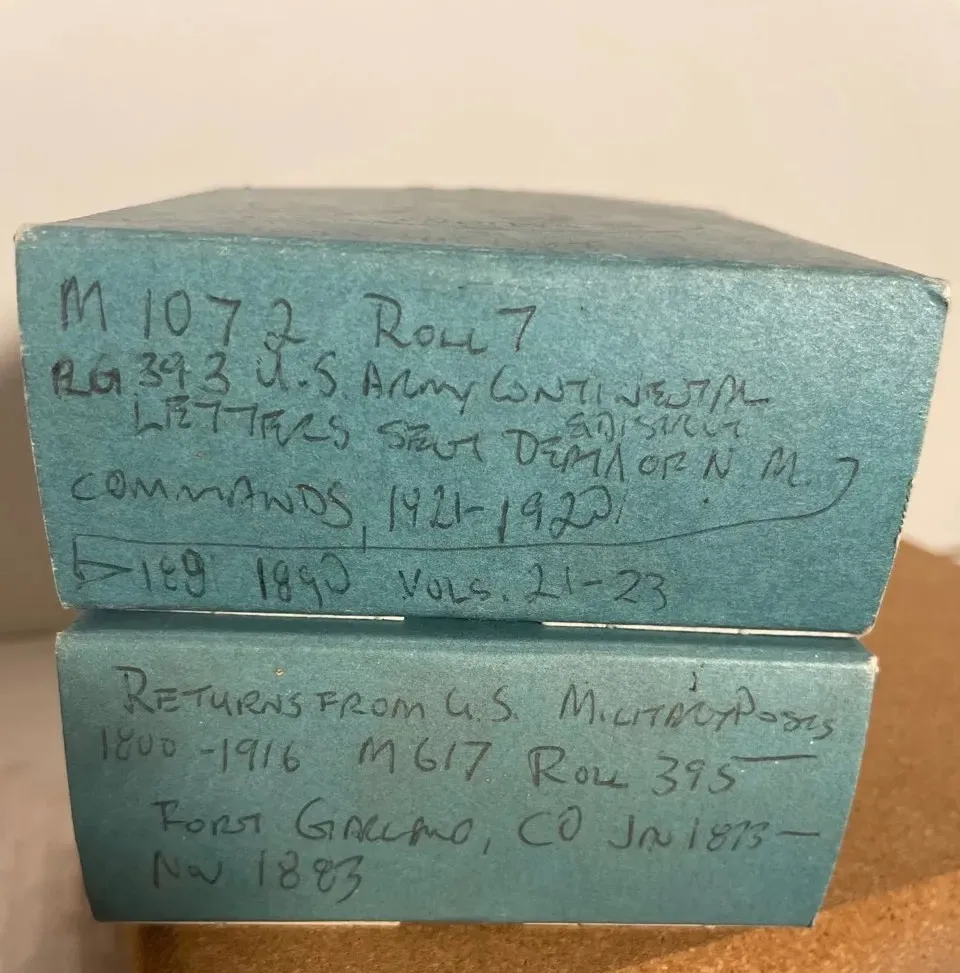 M 1072 ROLL 7
RG 393 U.S. ARMY CONTINENTAL
& DISTRICT
LETTERS SENT DEPT OF N. M.
COMMANDS, 1921-1920
189 1890 VOLS. 21-23
RETURNS FROM U.S. MILITARY POSTS
1800-1916 M617 ROLL 395
FORT GARLAND, CO JAN 1873-
NOV 1883